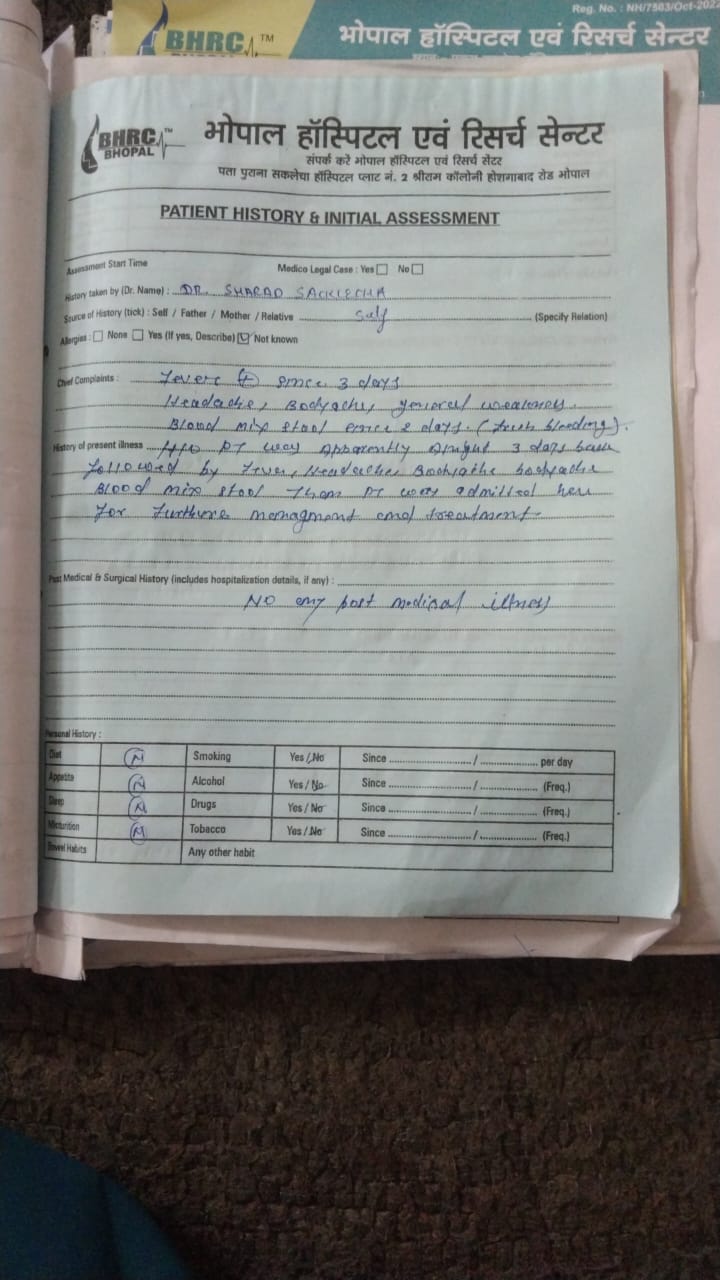 Reg. No. : NH/7563/Oct-2022
BHRC TM
भोपाल हॉस्पिटल एवं रिसर्च सेन्टर
BHRC TM
BHOPAL
भोपाल हॉस्पिटल एवं रिसर्च सेन्टर
संपर्क करें भोपाल हॉस्पिटल एवं रिसर्च सेंटर
पता पुराना सकलेचा हॉस्पिटल प्लाट नं. 2 श्रीराम कॉलोनी होशंगाबाद रोड भोपाल
PATIENT HISTORY & INITIAL ASSESSMENT
Assessment Start Time Medico Legal Case : Yes No
History taken by (Dr. Name) : DR. SHARAD SACKLECHA
Source of History (tick) : Self / Father / Mother / Relative Self (Specify Relation)
Allergies : None Yes (If yes, Describe) Not known
Chief Complaints : Fever (+) since 3 days
Headache, Bodyache, general weakness.
Blood mix stool since 2 days. (fresh bleeding).
History of present illness H/O PT way apparently 3 days back
followed by Fever, Headache Bodyache bodyache
Blood mix stool Then PT way admitted here
For Furthure managment and treatment.
Past Medical & Surgical History (includes hospitalization details, if any) :
NO any past medical illness
Personal History :
Diet N Smoking Yes / No Since / per day
Appetite N Alcohol Yes / No Since / (Freq.)
Sleep N Drugs Yes / No Since / (Freq.)
Micturition N Tobacco Yes / No Since / (Freq.)
Bowel Habits Any other habit